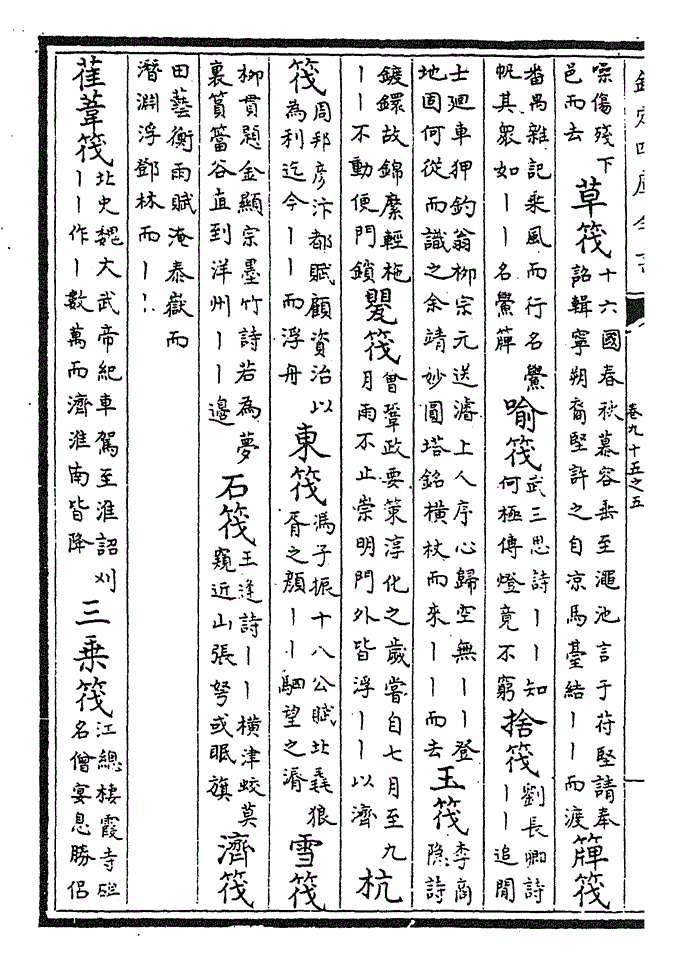 欽定四庫全書
卷九十五之五
嘌傷殘下
邑而去
草筏
十六國春秋慕容垂至澠池言于苻堅請奉
詔輯寧朔裔堅許之自凉馬臺結丨丨而渡
簰筏
番禺雜記乘風而行名鱟
帆其衆如丨丨名鱟簰
喻筏
武三思詩丨丨知
何極傳燈竟不窮
捨筏
劉長卿詩
丨丨追開
士廻車狎釣翁柳宗元送濬上人序心歸空無丨丨登
地固何從而識之余靖妙圓塔銘橫杖而來丨丨而去
玉筏
李商
隱詩
鍍鐶故錦縻輕柂
丨丨不動便門鎖
甖筏
曾鞏政要策淳化之歲嘗自七月至九
月雨不止崇明門外皆浮丨丨以濟
杭
筏
周邦彦汴都賦顧資治以
為利迄今丨丨而浮舟
東筏
馮子振十八公賦北毳狼
胥之顏丨丨駟望之漘
雪筏
柳貫題金顯宗墨竹詩若為夢
裏篔簹谷直到洋州丨丨邊
石筏
王逢詩丨丨橫津蛟莫
窺近山張弩或眠旗
濟筏
田藝衡雨賦淹泰嶽而
潛淵浮鄧林而丨丨
萑葦筏
北史魏大武帝紀車駕至淮詔刈
丨丨作丨數萬而濟淮南皆降
三乗筏
江總棲霞寺碑
名僧宴息勝侣